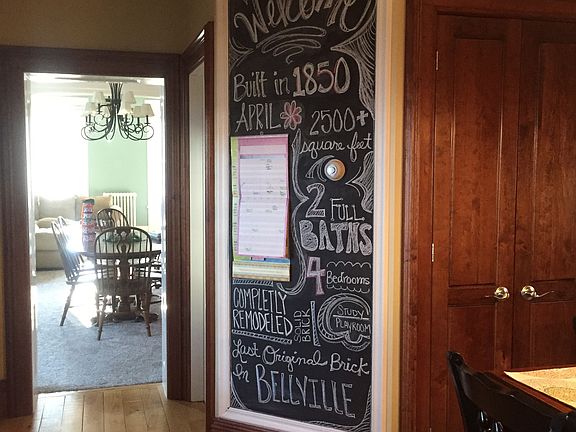 Welcome
Built in 1850
APRIL
2500+
square feet
2 FULL
BATHS
4 Bedrooms
COMPLETLY
REMODELED
SOLID
BRICK
1 STUDY
PLAYROOM
Last Original Brick
In BELLVILLE